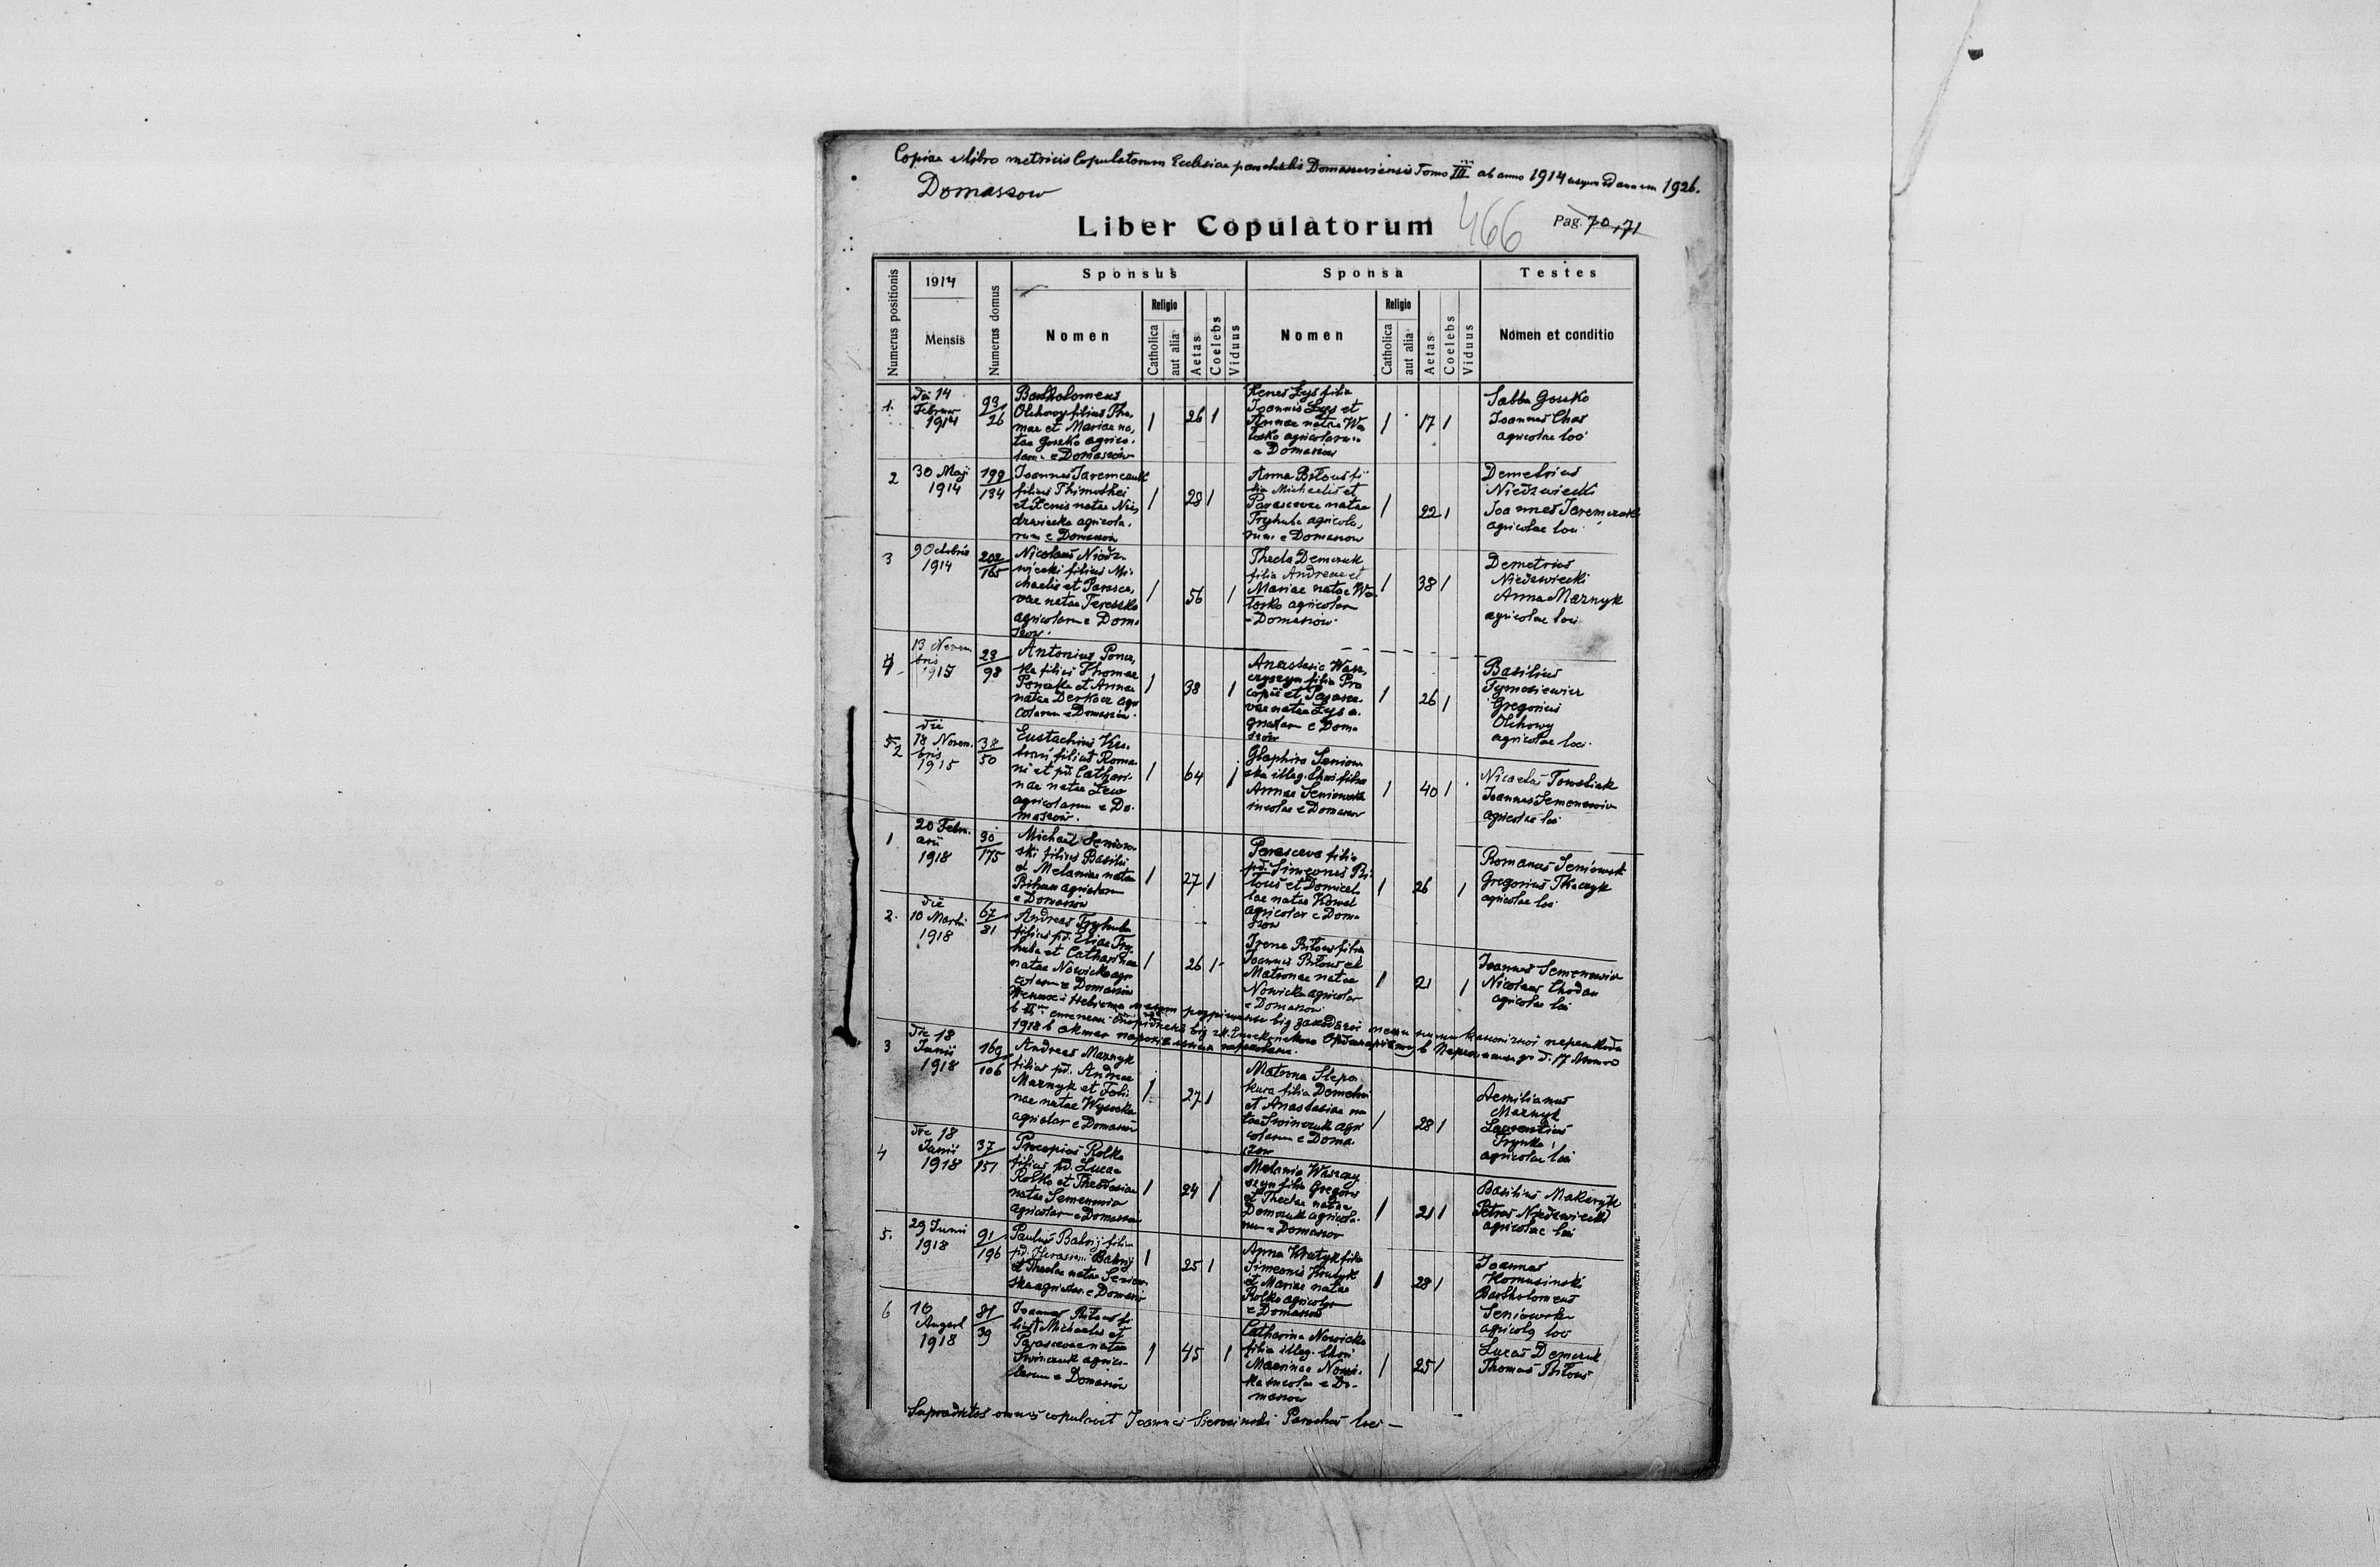 Copiae e libro metricis Copulatorum Ecclesiae parochialis Domaszoviensis Tomo III ab anno 1914 usque ad annum 1926.
Domaszow
Liber Copulatorum
466
Pag. 70,71
Numerus positionis
1914
Mensis
Numerus domus
Sponsus
Nomen
Religio
Catholica
aut alia
Aetas
Coelebs
Viduus
Sponsa
Nomen
Religio
Catholica
aut alia
Aetas
Coelebs
Viduus
Testes
Nomen et conditio
1.
Die 14
Februar
1914
93
26
Bartholomeus
Olchowy filius Tho,
mae et Mariae na,
tae Goszko agrico,
lam. e Domaszów
1 26 1
Xenes Łys filia
Joannis Łys et
Annae natae Wa
łosko agricolarum
e Domaszów
1 17 1
Sabba Goszko
Joannes Chas
agricolae loci
2
30 Maji
1914
199
134
Joannes Jaremczuk
filius Thimothei
et Xenis natae Nie,
dzwiecka agricola,
rum e Domaszów
1 28 1
Anna Biłous fi
lia Michaelis et
Parascevae natae
Tryhuba agricola,
rum e Domaszow
1 22 1
Demetrius
Niedzwiecki
Joannes Jaremczuk
agricolae loci
3
9 Octobris
1914
202
165
Nicolaus Niedz-
wiecki filius Mi-
chaelis et Parasce,
vae natae Tereszko
agricolarum e Doma
szow.
1 56 1
Thecla Demczuk
filia Andreae et
Mariae natae Wo-
łosko agricolarum
e Domaszow.
1 38 1
Demetrius
Niedzwiecki
Anna Maznyk
agricolae loci
4
13 Novem
bris
1915
23
98
Antonius Pona,
ka filii Thomae
Ponaka et Annae
natae Derkacz agri
colarum e Domaszów.
1 38 1
Anastasia Wasz,
czyszyn filia Pro
copii et Parasce-
vae natae Łys a.
gricolarum e Doma
szów
1 26 1
Basilius
Tymosiewicz
Gregorius
Olchowy
agricolae loci.
5
2
die
18 Novem.
bris
1915
38
50
Eustachius
filius Roma
ni et pd. Cathari-
nae natae Lew
agricolarum e Do-
maszów.
1 64 1
Glaphira Seniow
ska illeg. thori filia
Annae Seniowska
incolae e Domaszow
1 40 1
Nicolaus
Joannes Semenowicz
agricolae loci
1
20 Febru.
arii
1918
30
175
Michael Seniow-
ski filius Basilii
et Melaniae natae
Bihun agricolarum
e Domaszów
1 27 1
Parasceva filia
pd. Simeonis Bi-
łous et Domicel
lae natae Kowal
agricolar e Doma
szow
1 26 1
Romanus Seniowski
Gregorius Tkaczyk
agricolae loci
2.
die
10 Martii
1918
67
81
Andreas Tryhuba
filius pd. Eliae Try
huba et Catharinae
natae Nowicka agri
colarum e Domaszów
1 26 1
Irene Biłous filia
Joannis Biłous et
Matronae natae
Nowicka agricolar
e Domaszow
1 21 1
Joannes Semenowicz
Nicolaus Chodan
agricolae loci
3
Die 18
Junii
1918
169
106
Andreas Maznyk
filius pd. Andreae
Maznyk et
nae natae Wysocka
agricolar e Domaszów
1 27 1
Matrona Slepo
kura filia Demetrii
et Anastasiae na
tae Swinczuk agri
colarum e Doma
szow
1 28 1
Aemilianus
Maznyk
Laurentius
Hrynka
agricolae loci
4
Die 18
Junii
1918
37
151
Procopius Rolko
filius pd. Lucae
Rolko et Theodosiae
natae Semenowicz
agricolarum e Domaszów
1 24 1
Melania Waszczy
szyn filia Gregorii
et Theclae natae
Demczuk agricola-
rum e Domaszow
1 21 1
Basilius Makaryk
Petrus Niedzwiecki
agricolae loci
5.
29 Junii
1918
91
196
Paulus Bahrij filius
pd. Bahrij
et Theclae natae Seniow
ska agricolar. e Domaszów
1 25 1
Anna Krutyk filia
Simeonis Krutyk
et Mariae natae
Rolko agricolar
e Domaszow
1 28 1
Joannes
Homusinski
Bartholomeus
Seniowski
agricolae loci
6
16
August
1918
81
39
Joannes Biłous fi
lius Michaelis et
Parascevae natae
Swinczuk agrico-
larum e Domaszów
1 45 1
Catharina Nowicka
filia illeg. thori
Marinae Nowic-
ka incolae e Do-
maszow
1 25 1
Lucas Demczuk
Thomas Biłous
Supradictos omnes copulavit Joannes Parochus loci —
DRUKARNIA STANISŁAWA KOPACZA W RAWIE.